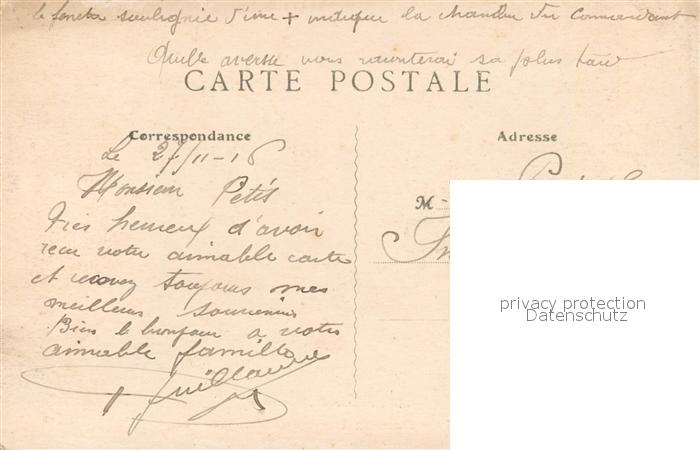 la fenetre soulignée d'une + indique la chambre du Commandant
Quelle averse vous raconterai sa plus tard
CARTE POSTALE
Correspondance
Adresse
Le 27/11-16
Monsieur Petit
M
Tres heureux d'avoir
recu votre aimable carte
et recevez toujours mes
meilleurs souvenirs
Bien le bonjour a votre
aimable famille
Guillaume
privacy protection
Datenschutz